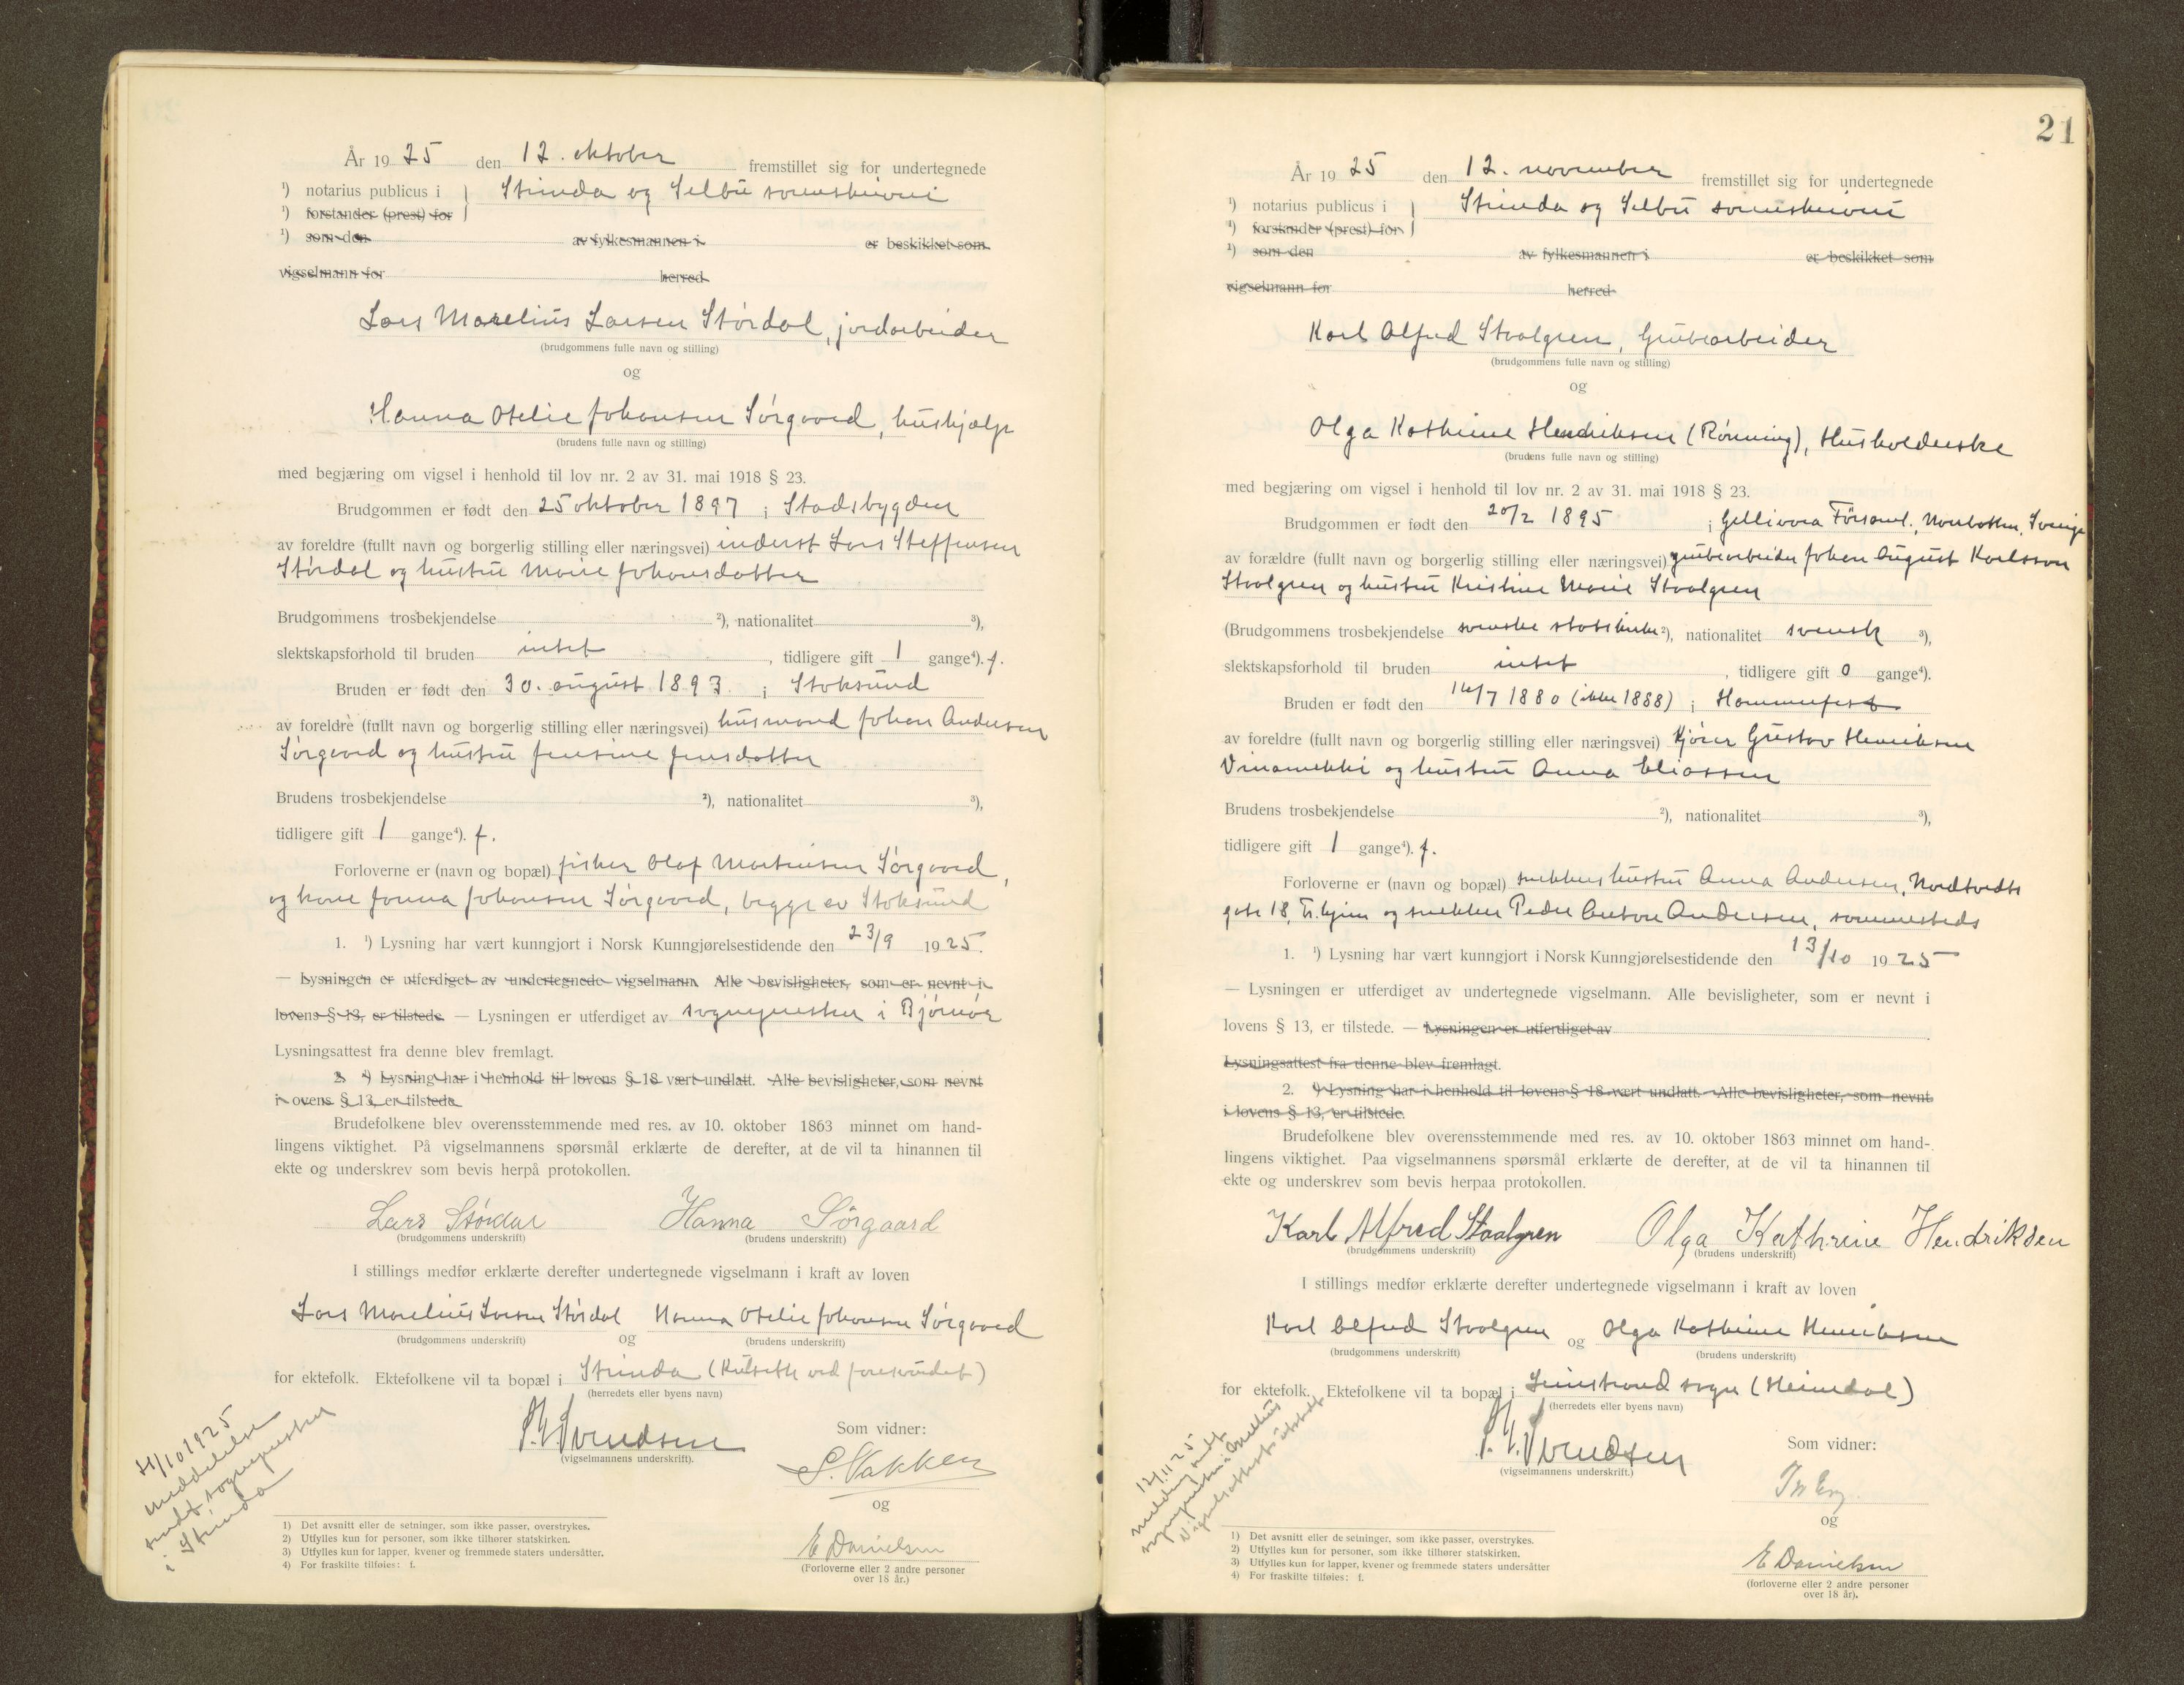 År 19 25 den 12. oktober fremstillet sig for undertegnede
¹) notarius publicus i Strinda og Selbu sorenskriveri
¹) forstander (prest) for
¹) som den av fylkesmannen i er beskikket som
vigselmann for herred
Lars Marelius Larsen Størdal, jordarbeider
(brudgommens fulle navn og stilling)
og
Hanna Otelie Johansen Sørgaard, hushjælp
(brudens fulle navn og stilling)
med begjæring om vigsel i henhold til lov nr. 2 av 31. mai 1918 § 23.
Brudgommen er født den 25 oktober 1897 i Stadsbygden
av foreldre (fullt navn og borgerlig stilling eller næringsvei) inderst Lars Steffensen
Størdal og hustru Marie Johansdatter
Brudgommens trosbekjendelse ²), nationalitet ³),
slektskapsforhold til bruden intet, tidligere gift 1 gange⁴). f.
Bruden er født den 30. august 1893. i Stoksund
av foreldre (fullt navn og borgerlig stilling eller næringsvei) husmand Johan Andersen
Sørgaard og hustru Jensine Jensdatter
Brudens trosbekjendelse ²), nationalitet ³),
tidligere gift 1 gange⁴). f.
Forloverne er (navn og bopæl) fisker Olaf Martinsen Sørgaard,
og kone Jonna Johansen Sørgaard, begge av Stoksund
1. ¹) Lysning har vært kunngjort i Norsk Kunngjørelsestidende den 23/9 1925.
— Lysningen er utferdiget av undertegnede vigselmann. Alle bevisligheter, som er nevnt i
lovens § 13, er tilstede. — Lysningen er utferdiget av sogneprester i Bjørnør
Lysningsattest fra denne blev fremlagt.
2. ¹) Lysning har i henhold til lovens § 18 vært undlatt. Alle bevisligheter, som nevnt
i ovens § 13, er tilstede.
Brudefolkene blev overensstemmende med res. av 10. oktober 1863 minnet om hand-
lingens viktighet. På vigselmannens spørsmål erklærte de derefter, at de vil ta hinannen til
ekte og underskrev som bevis herpå protokollen.
Lars Størdal Hanna Sørgaard
(brudgommens underskrift) (brudens underskrift)
I stillings medfør erklærte derefter undertegnede vigselmann i kraft av loven
Lars Marelius Larsen Størdal og Hanna Otelie Johansen Sørgaard
(brudgommens underskrift) (brudens underskrift)
for ektefolk. Ektefolkene vil ta bopæl i Strinda
(herredets eller byens navn)
Svendsen
(vigselmannens underskrift).
Som vidner:
S. Vakken
og
E Danielsen
(Forloverne eller 2 andre personer
over 18 år.)
/10 1925
meddelelse
sendt sogneprester
i Strinda
1) Det avsnitt eller de setninger, som ikke passer, overstrykes.
2) Utfylles kun for personer, som ikke tilhører statskirken.
3) Utfylles kun for lapper, kvener og fremmede staters undersåtter.
4) For fraskilte tilføies: f.
21
År 19 25 den 12. november fremstillet sig for undertegnede
¹) notarius publicus i Strinda og Selbu sorenskriveri
¹) forstander (prest) for
¹) som den av fylkesmannen i er beskikket som
vigselmann for herred
Karl Alfred Staalgren, Grubearbeider
(brudgommens fulle navn og stilling)
og
Olga Kathrine Hendriksen (Rønning), Husholderske
(brudens fulle navn og stilling)
med begjæring om vigsel i henhold til lov nr. 2 av 31. mai 1918 § 23.
Brudgommen er født den 20/2 1895 i Gellivara Församl., Norrbotten, Sverige
av forældre (fullt navn og borgerlig stilling eller næringsvei) grubearbeider Johan August Karlsson
Staalgren og hustru Kristine Marie Staalgren
(Brudgommens trosbekjendelse svenske statskirke ²), nationalitet svensk ³),
slektskapsforhold til bruden intet, tidligere gift 0 gange⁴).
Bruden er født den 16/7 1880 (ikke 1888) i Hammerfest
av foreldre (fullt navn og borgerlig stilling eller næringsvei) Kjører Gustav Henriksen
og hustru Anna Eliassen
Brudens trosbekjendelse ²), nationalitet ³),
tidligere gift 1 gange⁴). f.
Forloverne er (navn og bopæl) snekkers hustru Anna Andersen, Nordtvedts
gate 18, Tr.hjem og snekker Peder Anton Andersen, sammesteds
1. ¹) Lysning har vært kunngjort i Norsk Kunngjørelsestidende den 13/10 1925
— Lysningen er utferdiget av undertegnede vigselmann. Alle bevisligheter, som er nevnt i
lovens § 13, er tilstede. — Lysningen er utferdiget av
Lysningsattest fra denne blev fremlagt.
2. ¹) Lysning har i henhold til lovens § 18 vært undlatt. Alle bevisligheter, som nevnt
i lovens § 13, er tilstede.
Brudefolkene blev overensstemmende med res. av 10. oktober 1863 minnet om hand-
lingens viktighet. Paa vigselmannens spørsmål erklærte de derefter, at de vil ta hinannen til
ekte og underskrev som bevis herpaa protokollen.
Karl Alfred Staalgren Olga Kathrine Hendriksen
(brudgommens underskrift) (brudens underskrift)
I stillings medfør erklærte derefter undertegnede vigselmann i kraft av loven
Karl Alfred Staalgren og Olga Kathrine Henriksen
(brudgommens underskrift) (brudens underskrift)
for ektefolk. Ektefolkene vil ta bopæl i Leinstrand sogn (Heimdal)
(herredets eller byens navn)
Svendsen
(vigselmannens underskrift.)
Som vidner:
og
E Danielsen
(forloverne eller 2 andre personer
over 18 år).
12/11 25
melding sendt
sogneprester i Melhus
Vigselsattest utstedt
1) Det avsnitt eller de setninger, som ikke passer, overstrykes.
2) Utfylles kun for personer, som ikke tilhører statskirken.
3) Utfylles kun for lapper, kvener og fremmede staters undersåtter
4) For fraskilte tilføies: f.